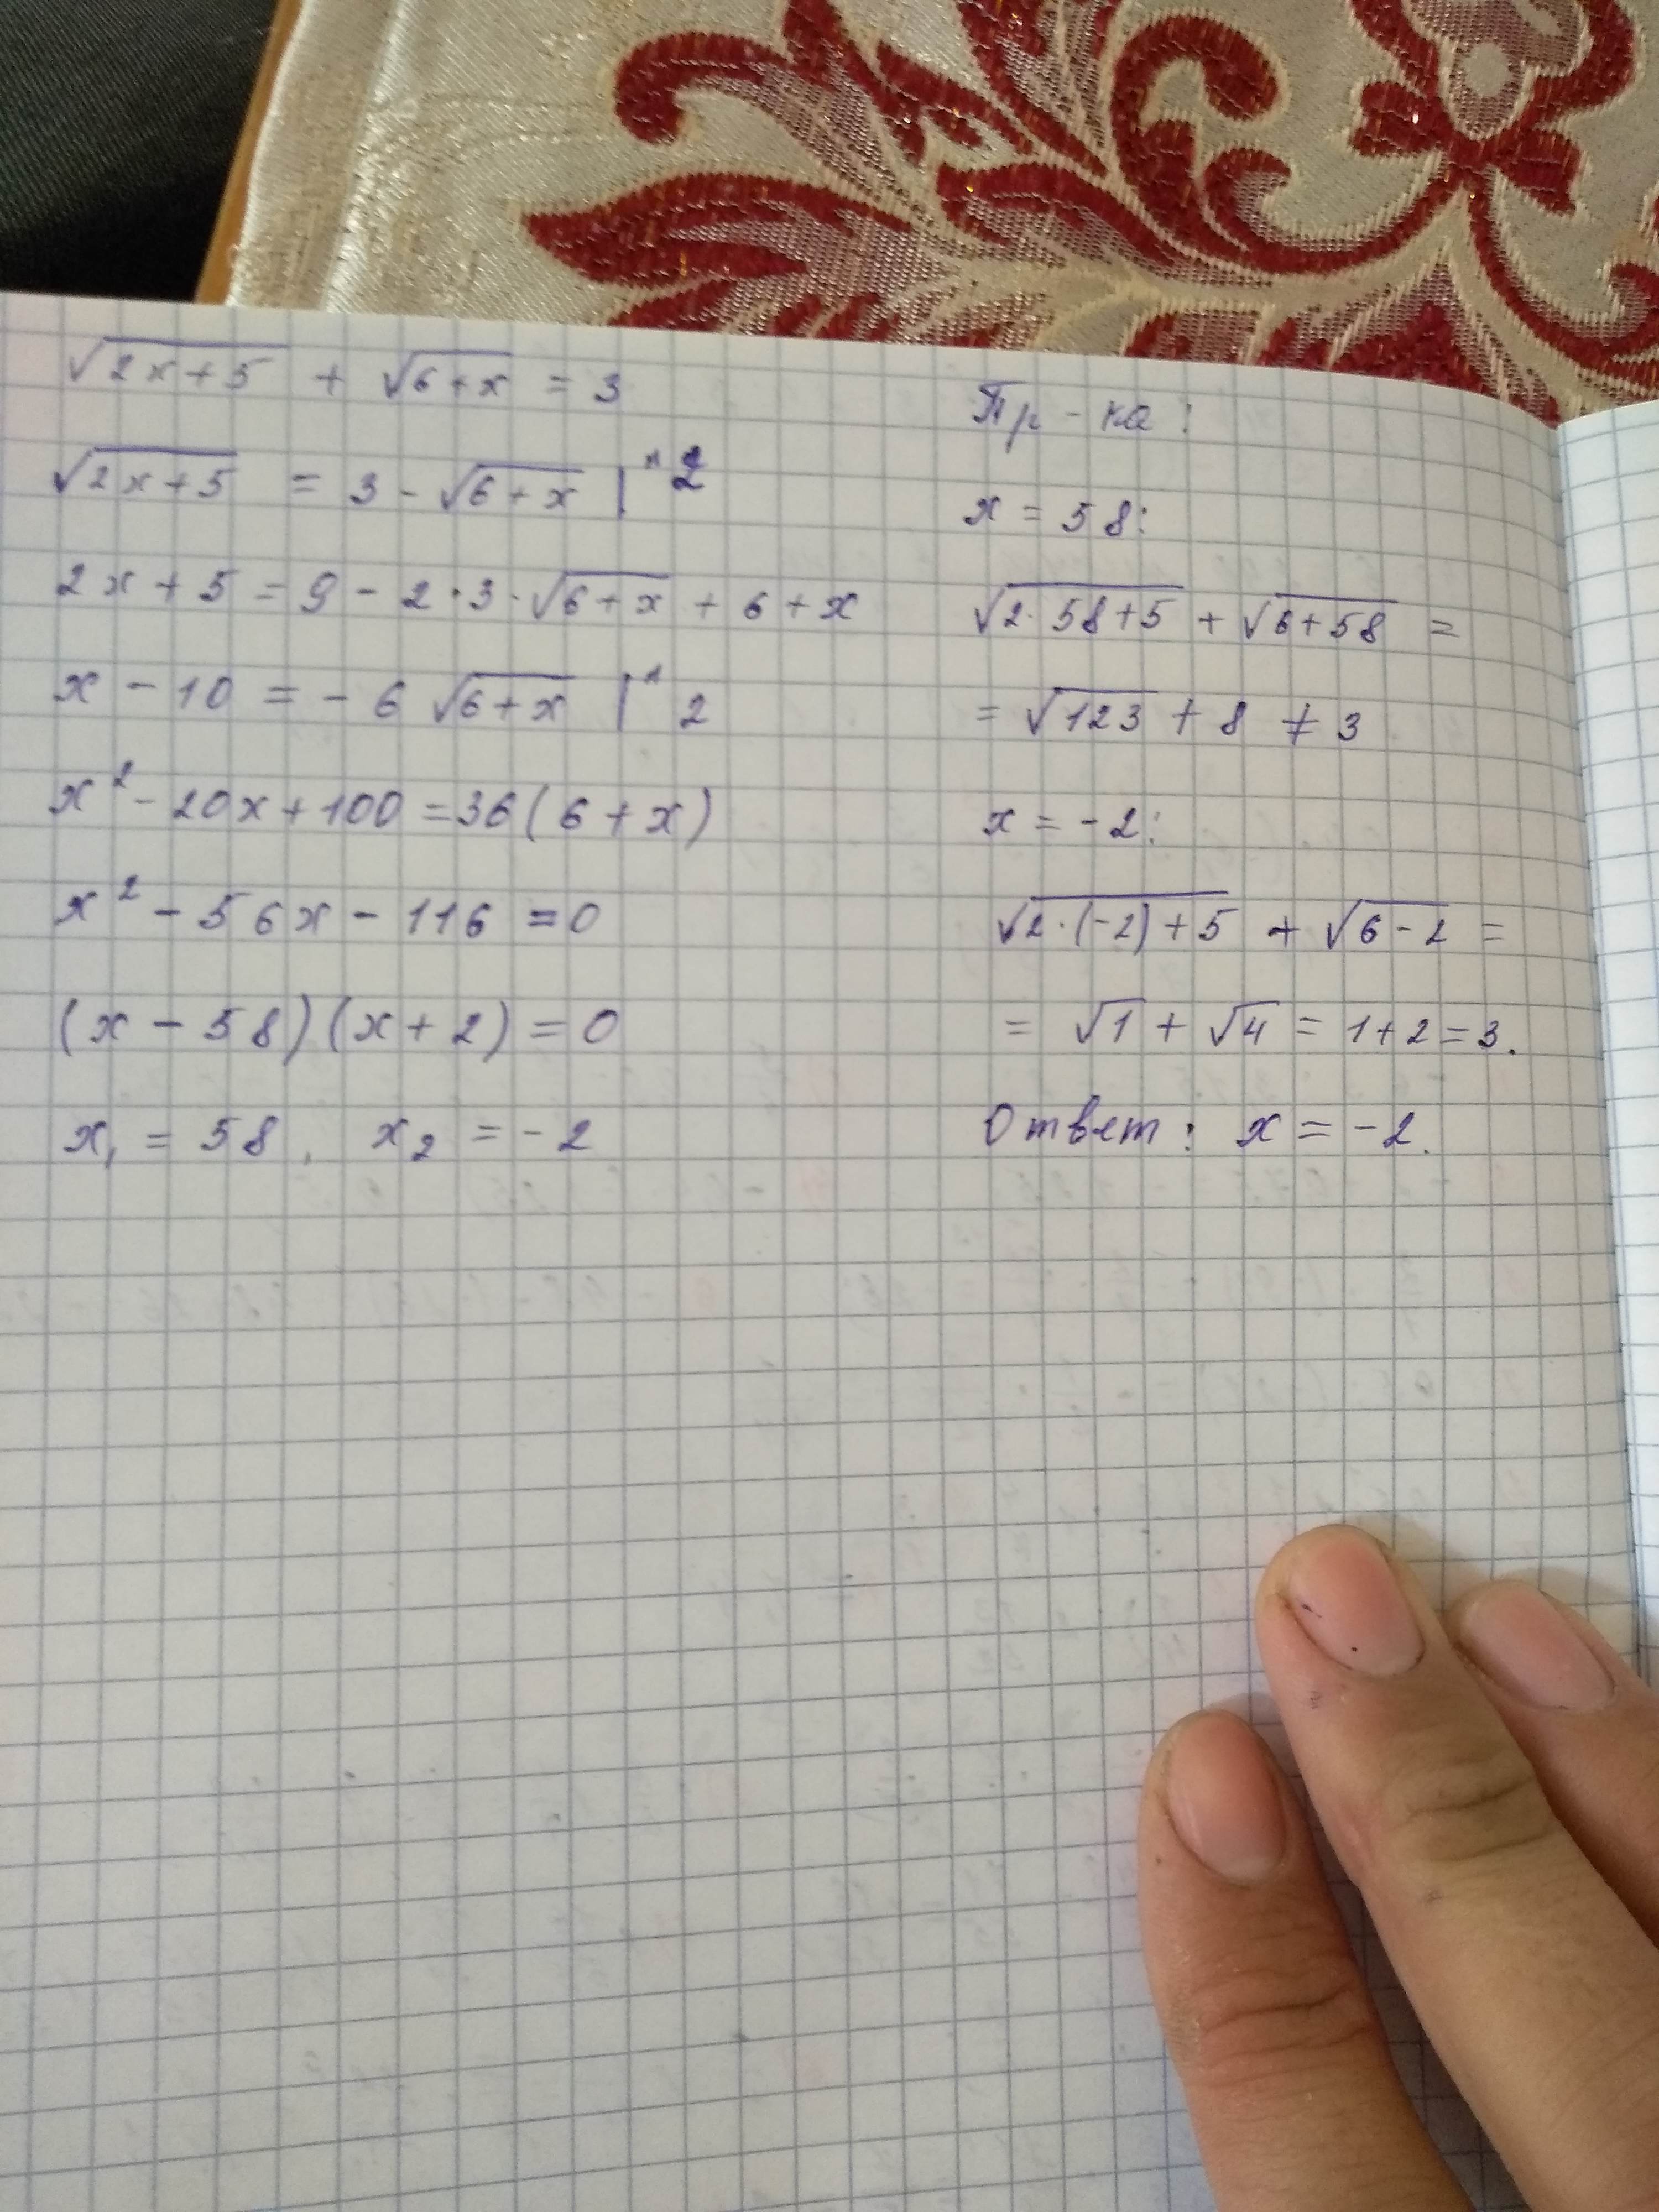 √(2x+5) + √(6+x) = 3
√(2x+5) = 3 - √(6+x) |^2
2x + 5 = 9 - 2·3·√(6+x) + 6 + x
x - 10 = - 6 √(6+x) |^2
x² - 20x + 100 = 36(6 + x)
x² - 56x - 116 = 0
(x - 58)(x + 2) = 0
x₁ = 58, x₂ = -2
Пр-ка:
x = 58:
√(2·58+5) + √(6+58) =
= √123 + 8 ≠ 3
x = -2:
√(2·(-2)+5) + √(6-2) =
= √1 + √4 = 1+2=3.
Ответ: x = -2.